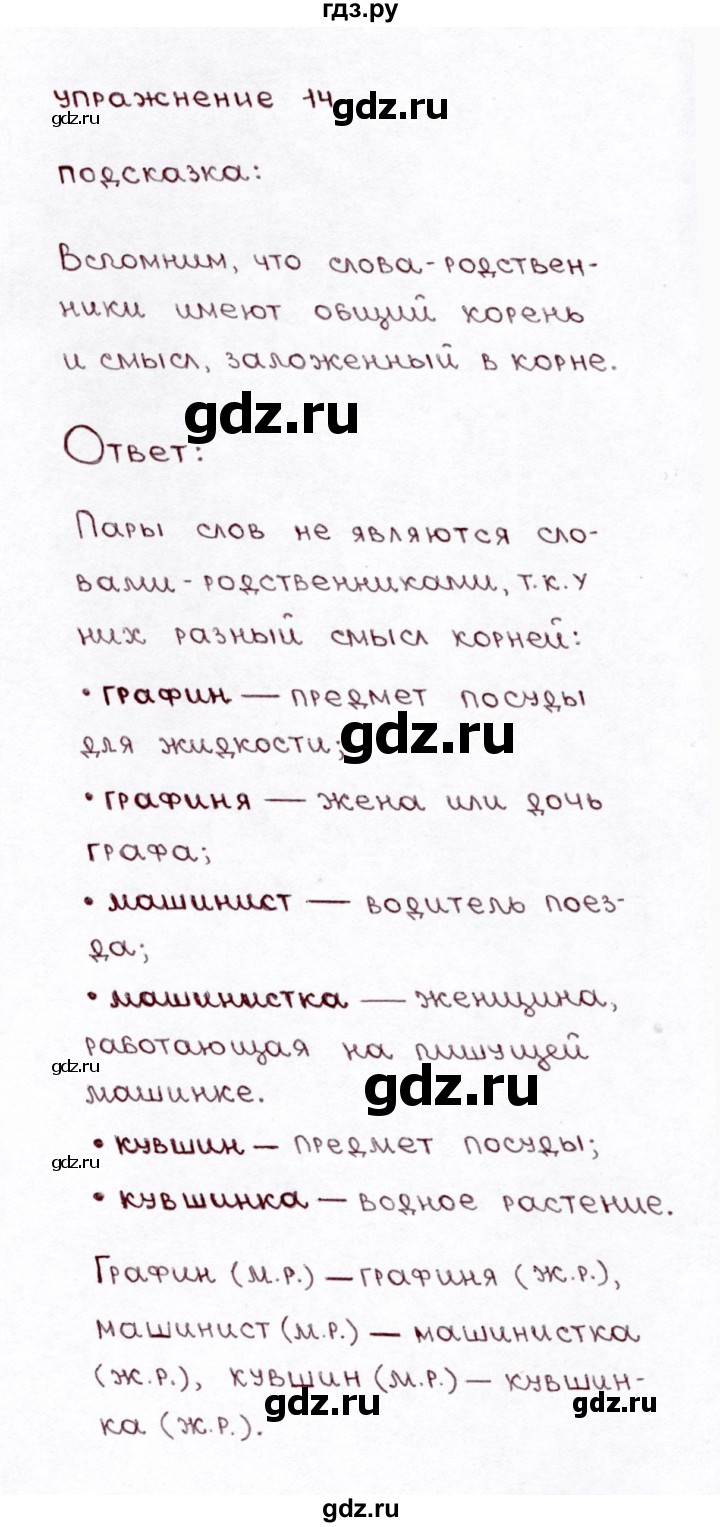 гдз.ру
упражнение 14
gdz.ru
gdz.ru
подсказка:
Вспомним, что слова-родствен-
ники имеют общий корень
и смысл, заложенный в корне.
gdz.ru
Ответ:
Пары слов не являются сло-
вами-родственниками, т.к. у
них разный смысл корней:
• графин — предмет посуды
gdz.ru
для жидкости;
• графиня — жена или дочь
графа;
• машинист — водитель поез-
да;
• машинистка — женщина,
работающая на пишущей
gdz.ru
машинке.
gdz.ru
• кувшин — предмет посуды;
gdz.ru
• кувшинка — водное растение.
Графин (м.р.) — графиня (ж.р.),
машинист (м.р.) — машинистка
(ж.р.), кувшин (м.р.) — кувшин-
gdz.ru
gdz.ru
ка (ж.р.).
gdz.ru